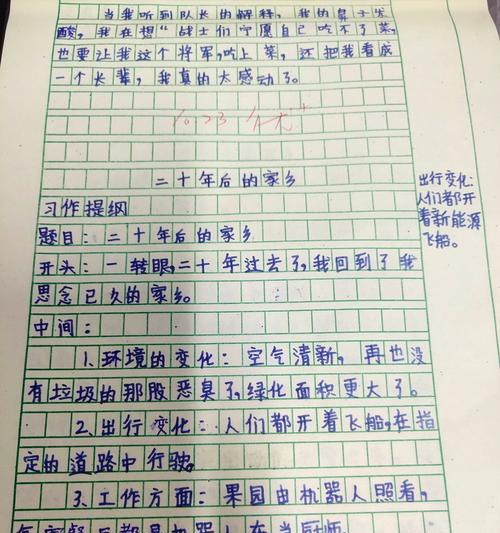 当我听到队长的解释，我的鼻子发
酸，我在想“战士们宁愿自己吃不了菜，
也要让我这个将军吃上菜，还把我看成
一个长辈，我真的太感动了。
10.23 优+
二十年后的家乡
习作提纲
题目：二十年后的家乡
开头：一转眼，二十年过去了，我回到了我
思念已久的家乡。
中间：
1.环境的变化：空气清新，再也没
有垃圾的那股恶臭了，绿化面积更大了。
2.出行变化：人们都开着飞船，在指
定的道路中行驶。
3.工作方面：果园由机器人照看，
每家餐厅都是机器人在当厨师。
出行变化：
人们都开
着新能源
飞船。